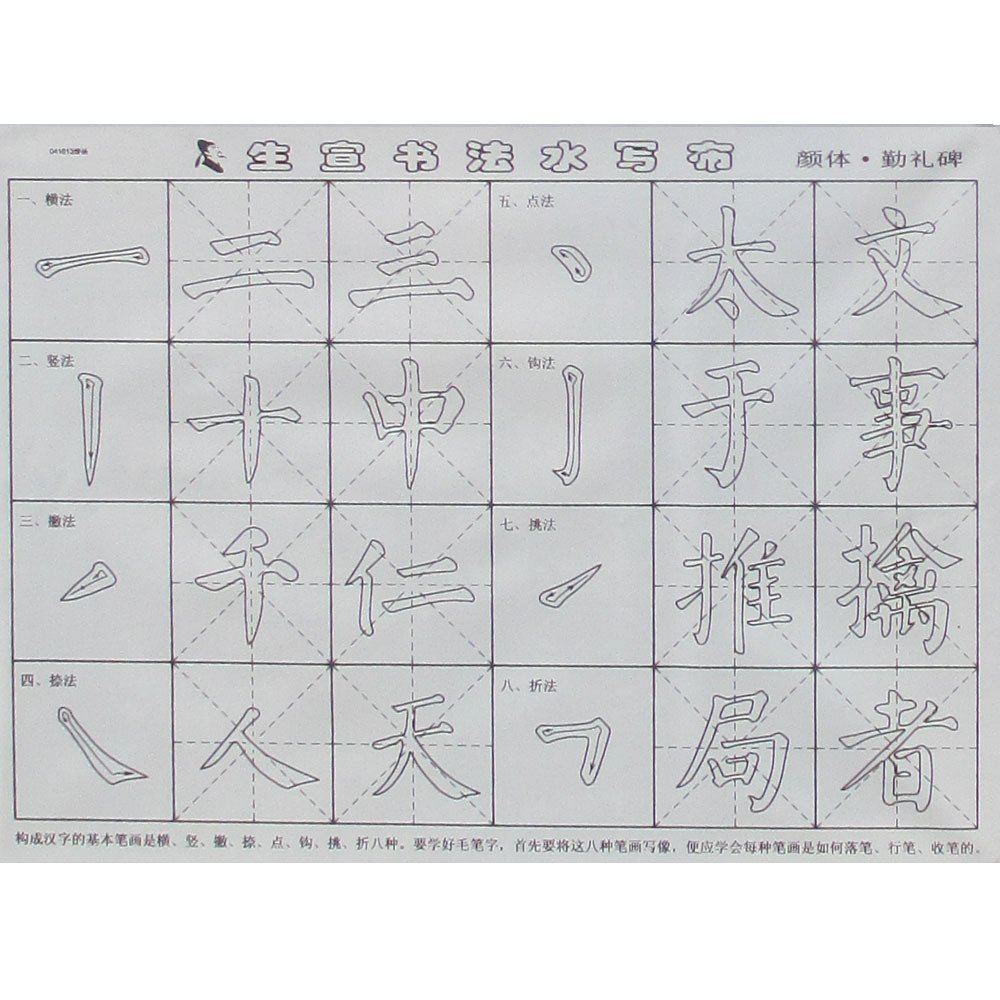 生宣书法水写布
颜体·勤礼碑
一、横法 二 三 五、点法 太 文
二、竖法 十 中 六、钩法 于 事
三、撇法 千 仁 七、挑法 推 擒
四、捺法 人 天 八、折法 局 者
构成汉字的基本笔画是横、竖、撇、捺、点、钩、挑、折八种。要学好毛笔字，首先要将这八种笔画写像，便应学会每种笔画是如何落笔、行笔、收笔的。